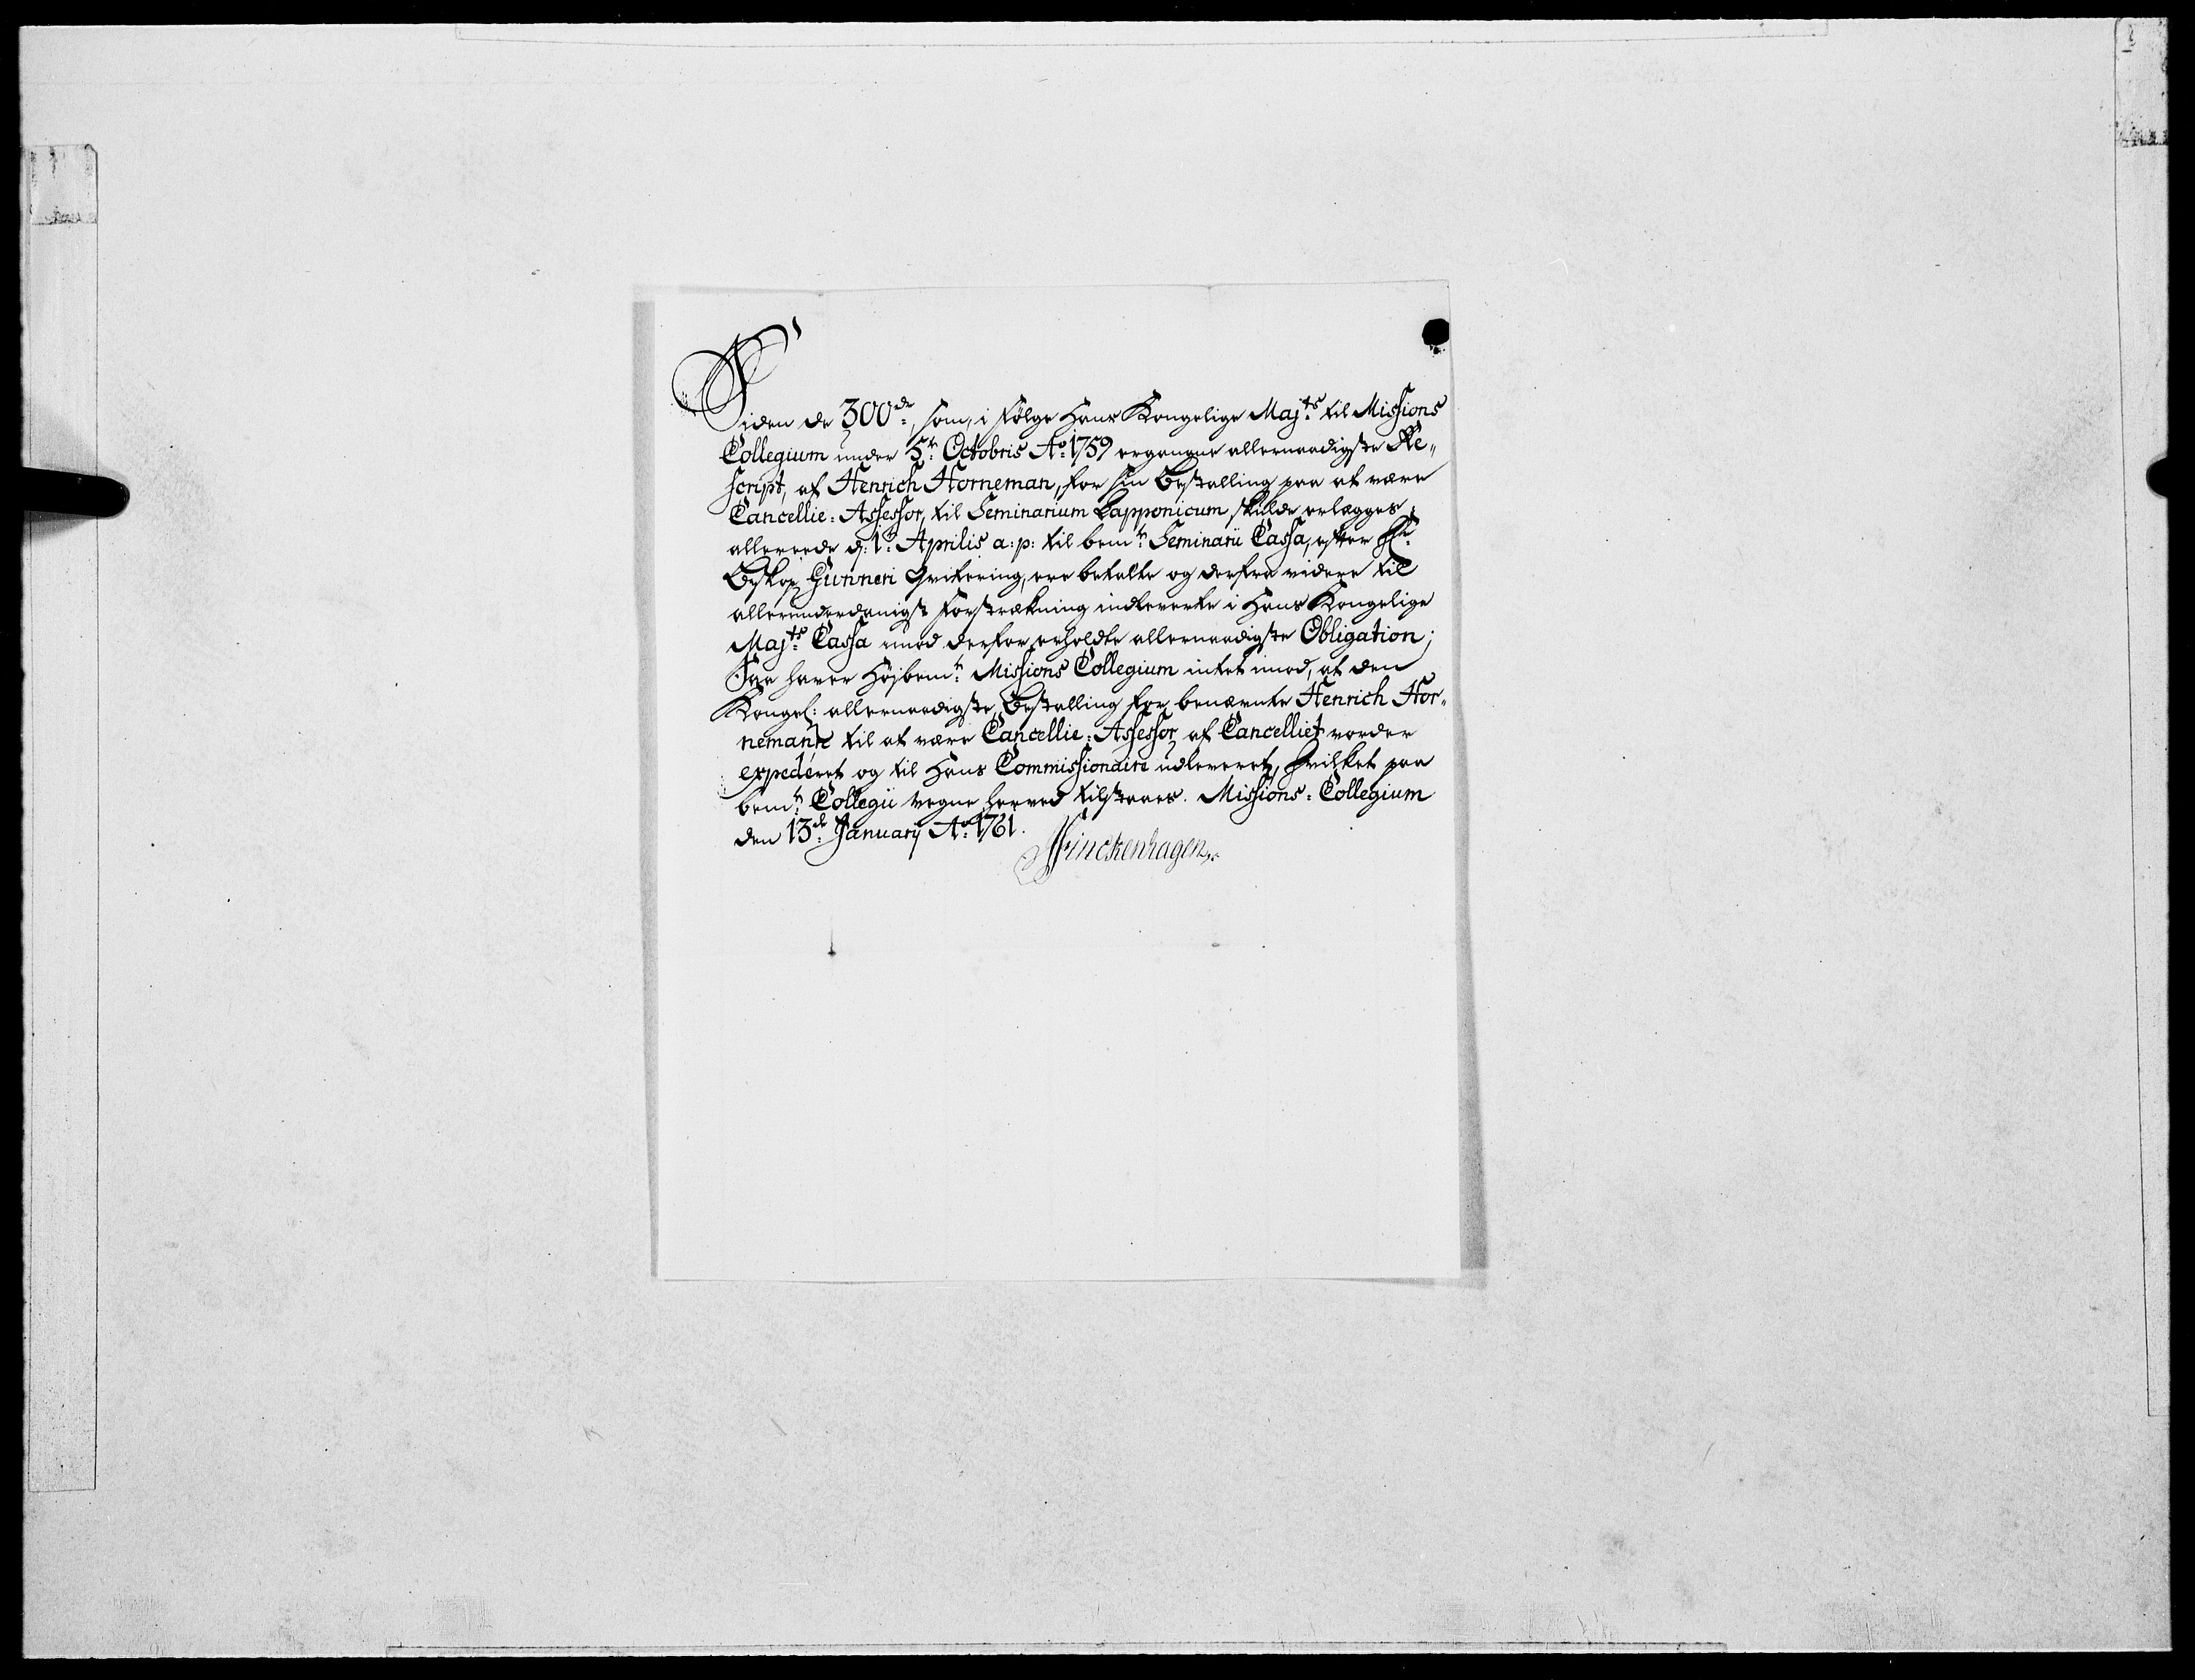 Siden de 300 dr, som, i følge Hans Kongelige Maj:ts til Missions
Collegium under 5te Octobris Ao 1759 ergangne allernaadigste Re„
script, af Henrich Horneman, for sin Bestalling paa at være
Cancellie-Assessor, til Seminarium Lapponicum skulde erlægges,
allereede d: 1te Aprilis a: p: til bemte Seminarii Cassa, efter Hr
Biskop Gunneri Qvitering, ere betalte og derfra videre til
allerunderdanigst Forstrækning indleverte i Hans Kongelige
Maj:ts Cassa imod derfor erholdte allernaadigste Obligation;
Saa haver Højbemte Missions Collegium intet imod, at den
Kongel: allernaadigste Bestalling for benævnte Henrich Hor„
nemann til at være Cancellie-Assessor af Cancelliet vorder
expederet og til Hans Commissionaire udleveret, hvilket paa
bemte Collegii vegne herved tilstaaes. Missions-Collegium
den 13de Januarij Ao 1761.
Finckenhagen